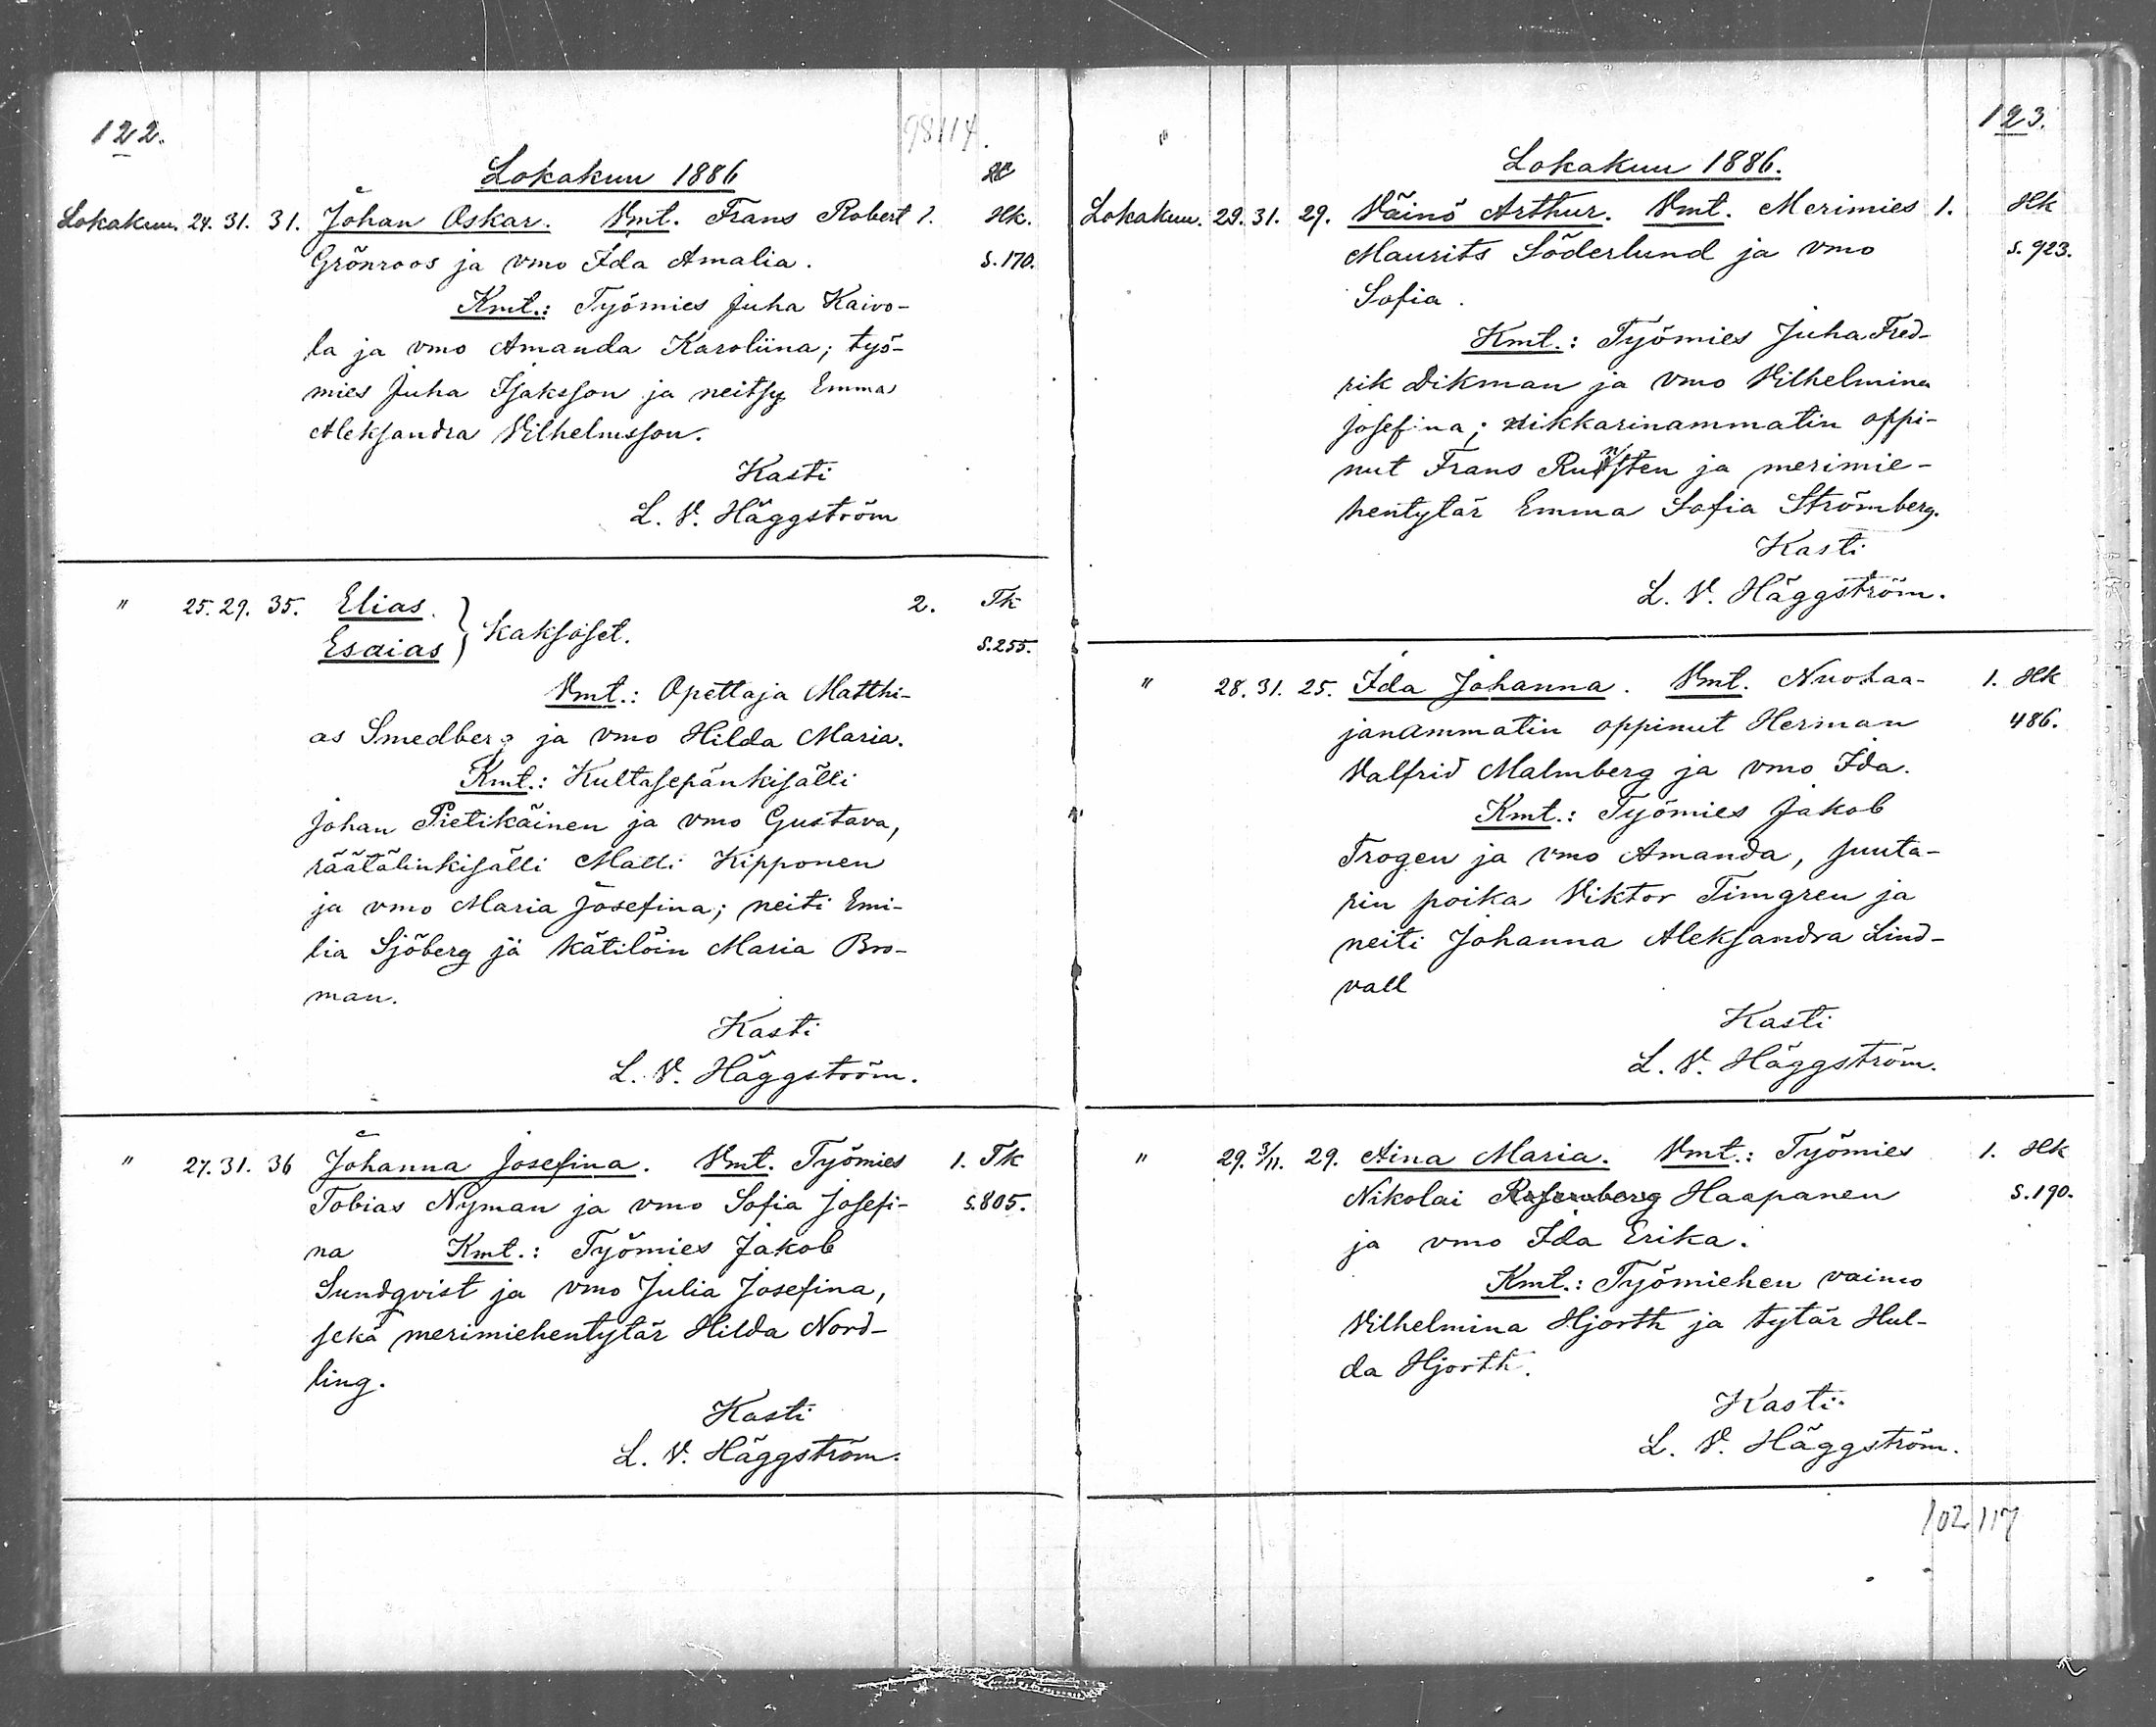 122.
98 114.
Lokakuu 1886
Lokakuu. 24. 31. 31. Johan Oskar. Vmt. Frans Robert 1. Hk.
Grönroos ja vmo Ida Amalia. S. 170.
Kmt.: Työmies Juha Kaivo-
la ja vmo Amanda Karoliina; työ-
mies Juha Isaksson ja neitsy Emma
Aleksandra Vilhelmsson.
Kasti
L. V. Häggström
" 25. 29. 35. Elias. 2. Tk
Esaias } Kaksoset. S. 255.
Vmt.: Opettaja Matthi-
as Smedberg ja vmo Hilda Maria.
Kmt.: Kultasepänkisälli
Johan Pietikäinen ja vmo Gustava,
räätälinkisälli Matti Kipponen
ja vmo Maria Josefina; neiti Emi-
lia Sjöberg ja kätilöin Maria Bro-
man.
Kasti
L. V. Häggström.
" 27. 31. 36 Johanna Josefina. Vmt. Työmies 1. Tk
Tobias Nyman ja vmo Sofia Josefi- S. 805.
na Kmt.: Työmies Jakob
Sundqvist ja vmo Julia Josefina,
sekä merimiehentytär Hilda Nord-
ling.
Kasti
L. V. Häggström.
123.
"
Lokakuu 1886.
Lokakuu. 29. 31. 29. Väinö Arthur. Vmt. Merimies 1. Hk
Maurits Söderlund ja vmo S. 923.
Sofia.
Kmt.: Työmies Juha Fred-
rik Dikman ja vmo Vilhelmina
Josefina; nikkarinammatin oppi-
nut Frans ja merimie-
hentytär Emma Sofia Strömberg.
Kasti
L. V. Häggström.
" 28. 31. 25. Ida Johanna. Vmt. Nuohaa- 1. Hk
janammatin oppinut Herman 486.
Valfrid Malmberg ja vmo Ida.
Kmt.: Työmies Jakob
Trogen ja vmo Amanda, suuta-
rin poika Viktor Timgren ja
neiti Johanna Aleksandra Lind-
vall
Kasti
L. V. Häggström.
" 29. 3/11. 29. Aina Maria. Vmt.: Työmies 1. Hk
Nikolai Rosenberg Haapanen S. 190.
ja vmo Ida Erika.
Kmt.: Työmiehen vaimo
Vilhelmina Hjorth ja tytär Hul-
da Hjorth.
Kasti.
L. V. Häggström.
102 117